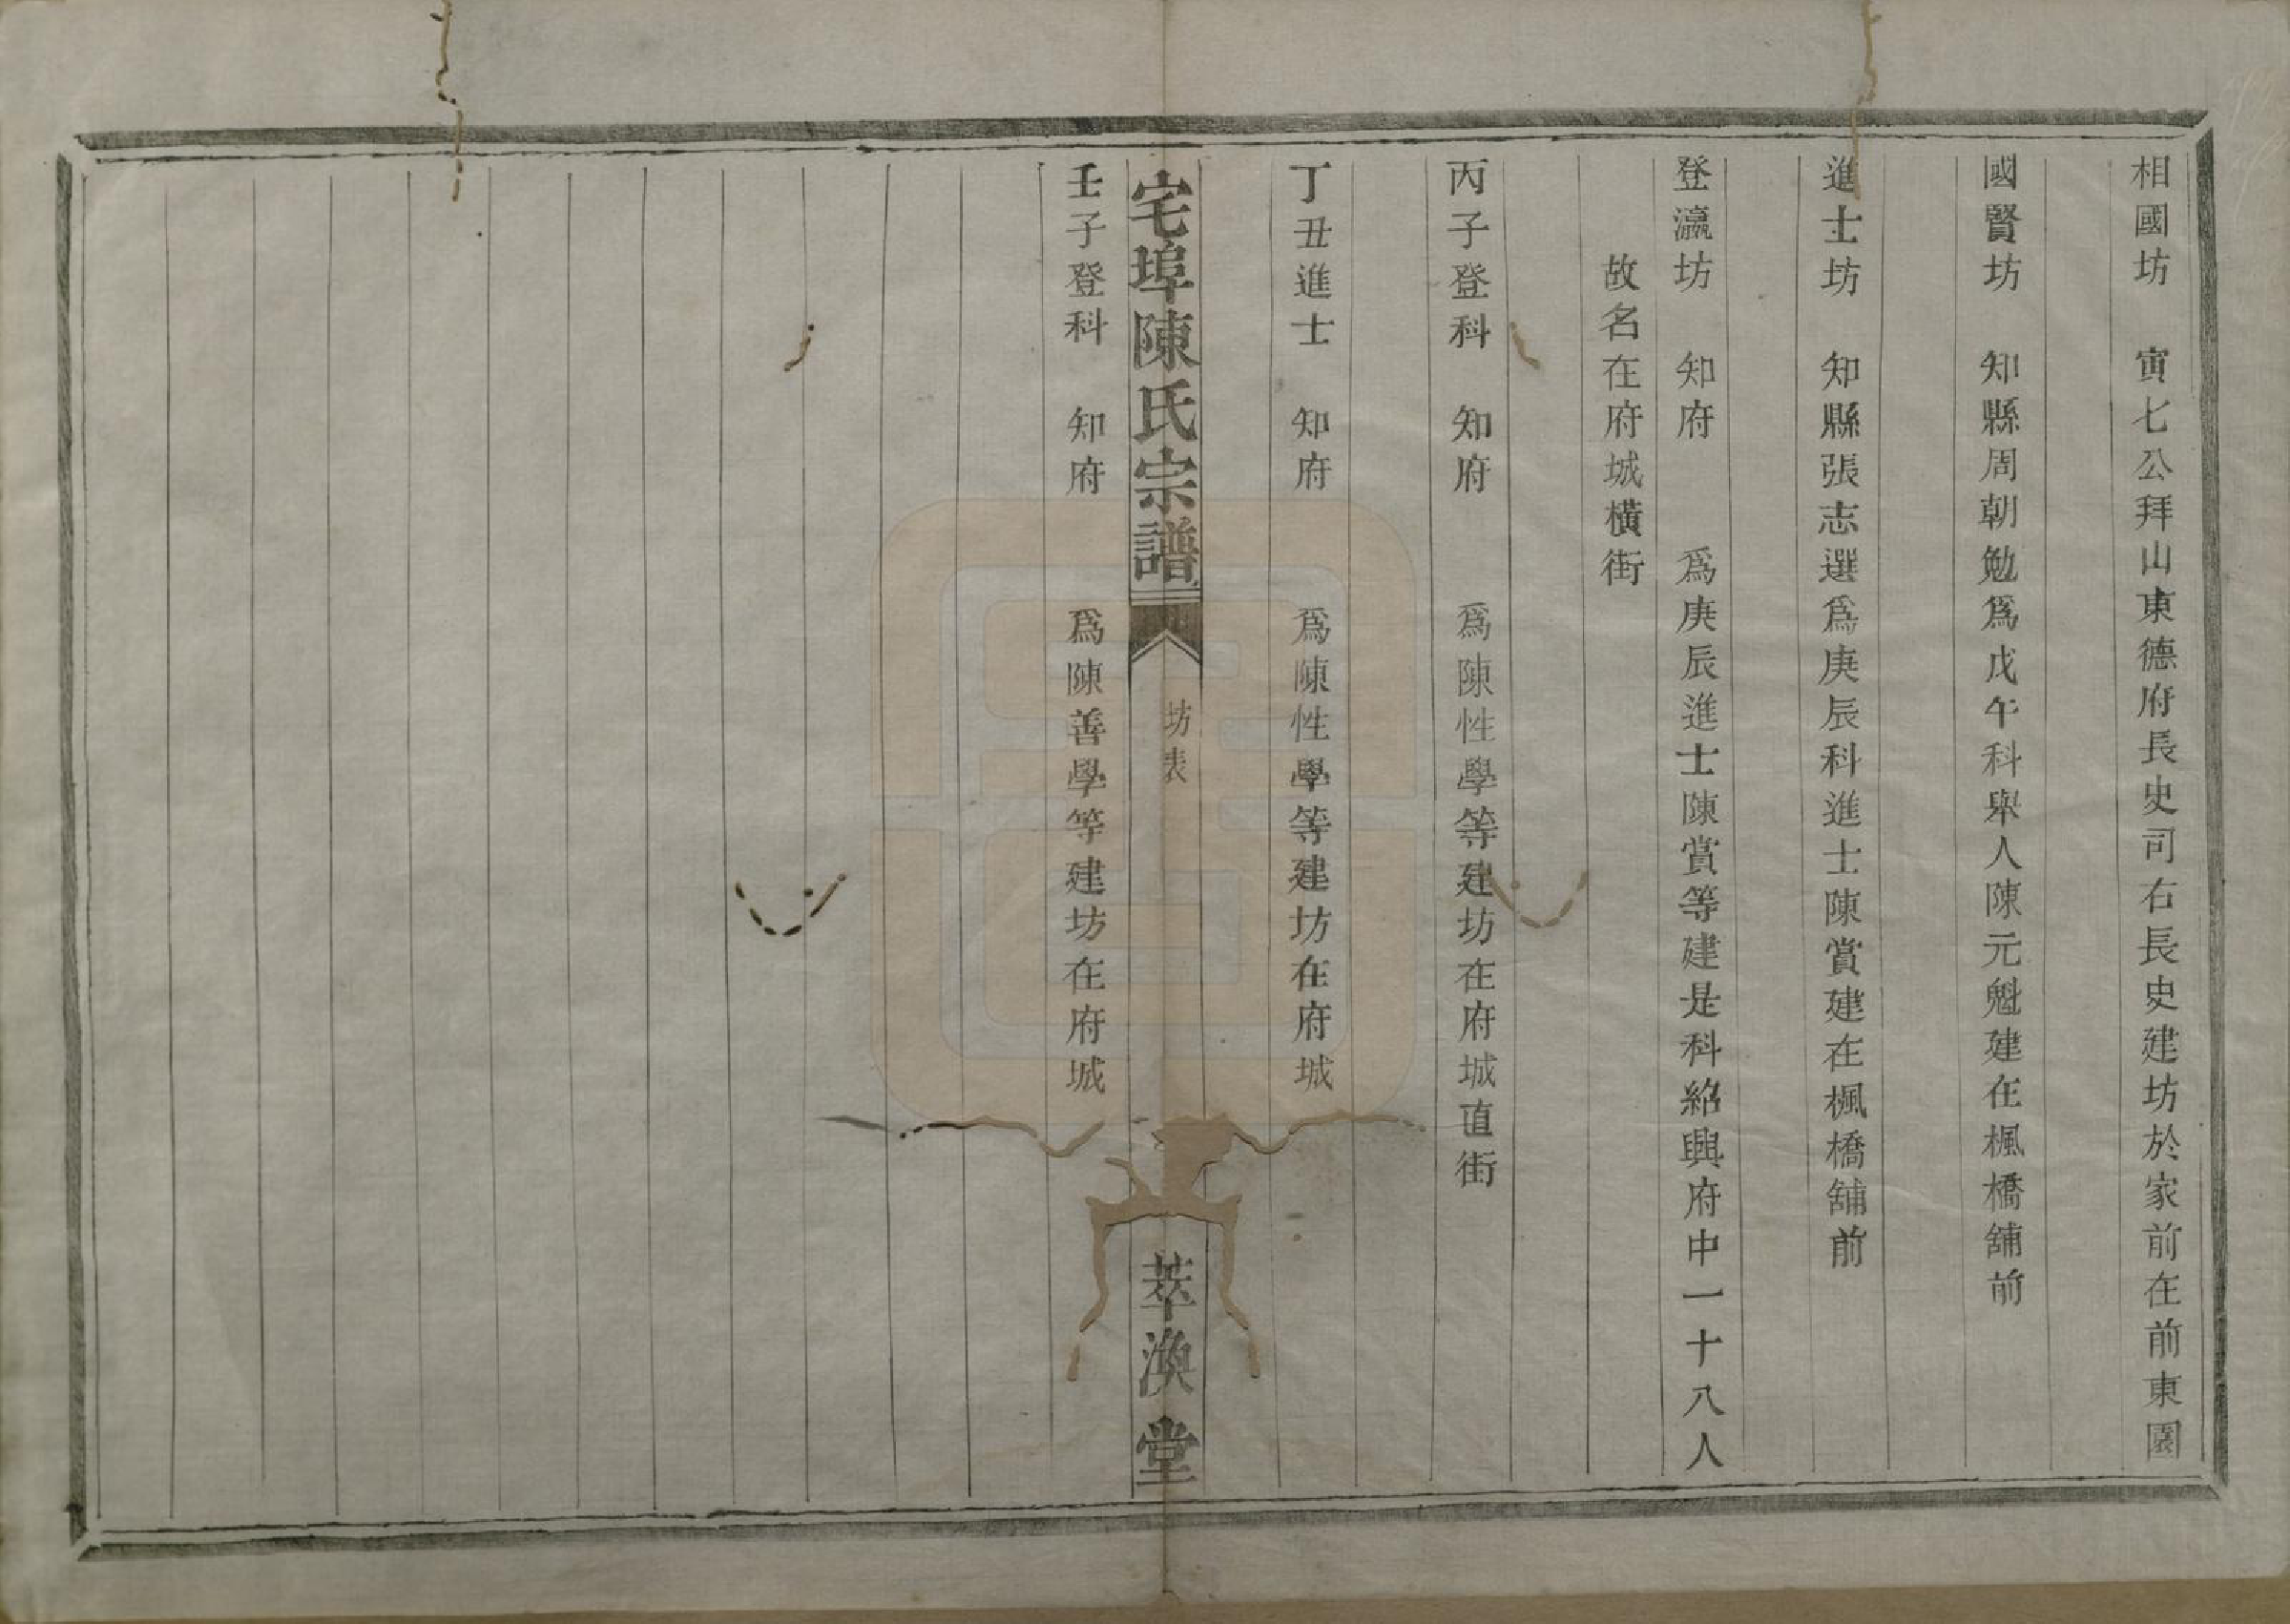 相國坊　寅七公拜山東德府長史司右長史建坊於家前在前東園
國賢坊　知縣周朝勉爲戊午科舉人陳元魁建在楓橋舖前
進士坊　知縣張志選爲庚辰科進士陳賞建在楓橋舖前
登瀛坊　知府　　爲庚辰進士陳賞等建是科紹興府中一十八人
故名在府城橫街
丙子登科　知府　　爲陳性學等建坊在府城直街
丁丑進士　知府　　爲陳性學等建坊在府城
宅埠陳氏宗譜　坊表　萃渙堂
壬子登科　知府　　爲陳善學等建坊在府城